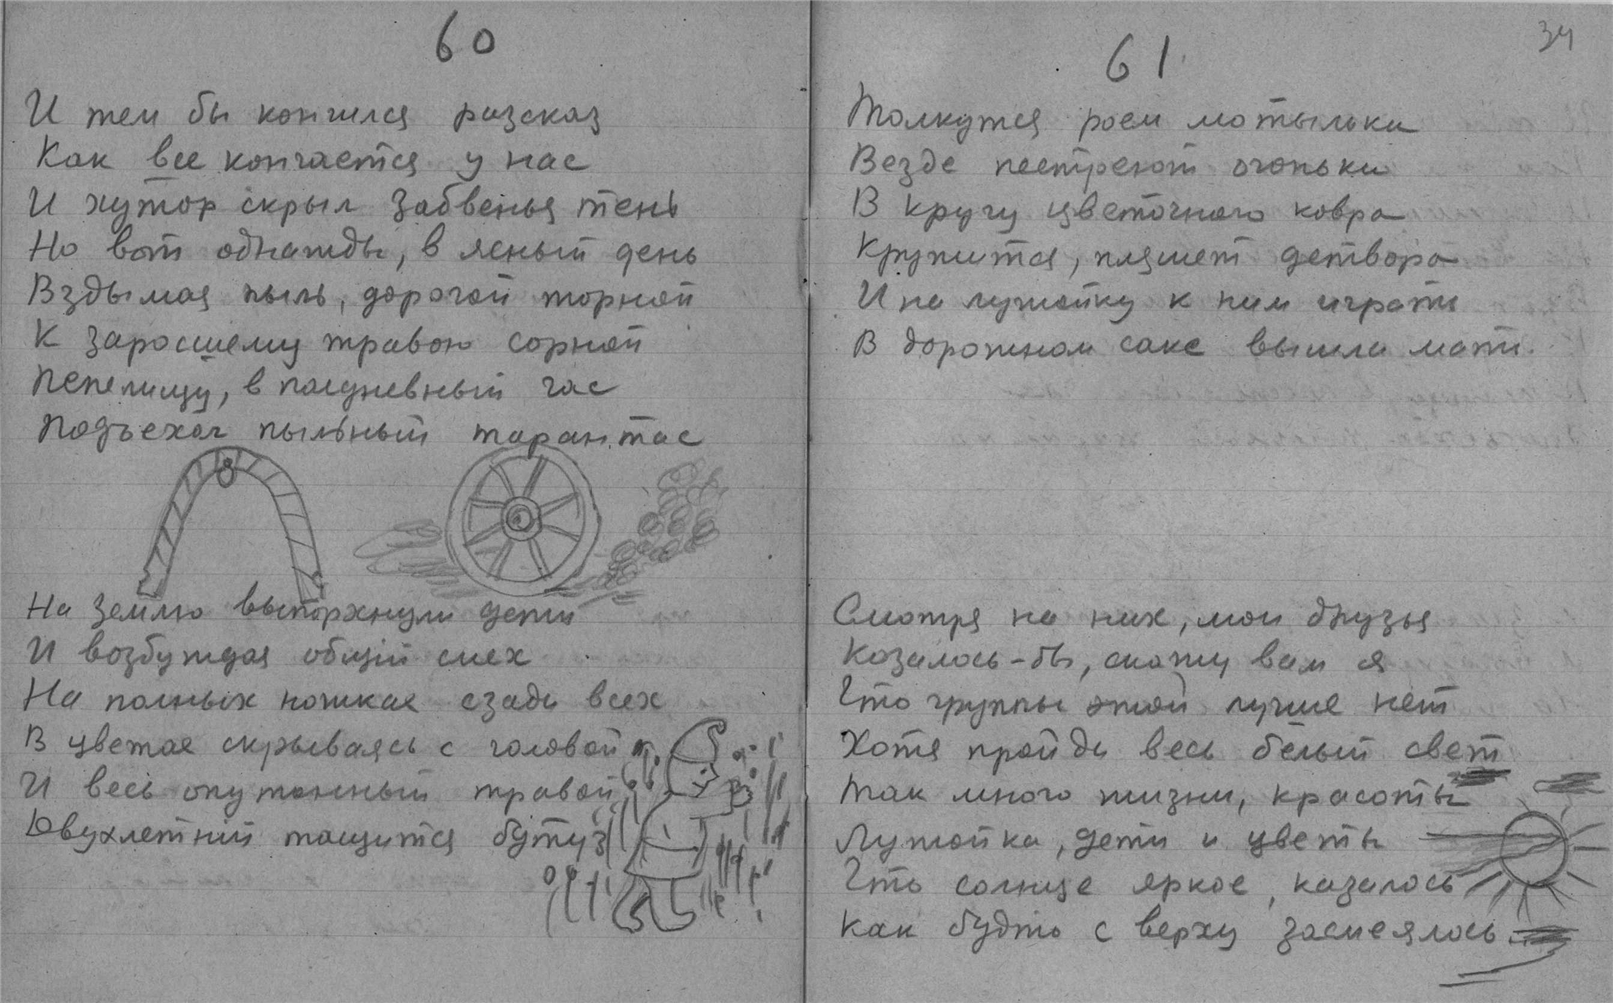 60
И тем бы кончился разсказ
Как все кончается у нас
И хутор скрыл забвенья тень
Но вот однажды, в ясный день
Вздымая пыль, дорогой торной
К заросшему травою сорной
Пепелищу, в полдневный час
Подъехал пыльный тарантас
На землю выпорхнули дети
И возбуждая общий смех
На полных ножках сзади всех
В цветах скрываясь с головой
И весь опутанный травой
Двухлетний тащится бутуз
34
61
Толкутся роем мотыльки
Везде пестреют огоньки
В кругу цветочного ковра
Кружится, пляшет детвора
И на лужайку к ним играть
В дорожном саке вышла мать.
Смотря на них, мои друзья
Казалось-бы, скажу вам я
Что группы этой лучше нет
Хотя пройди весь белый свет
Так много жизни, красоты
Лужайка, дети и цветы
Что солнце яркое, казалось
Как будто с верху засмеялось.